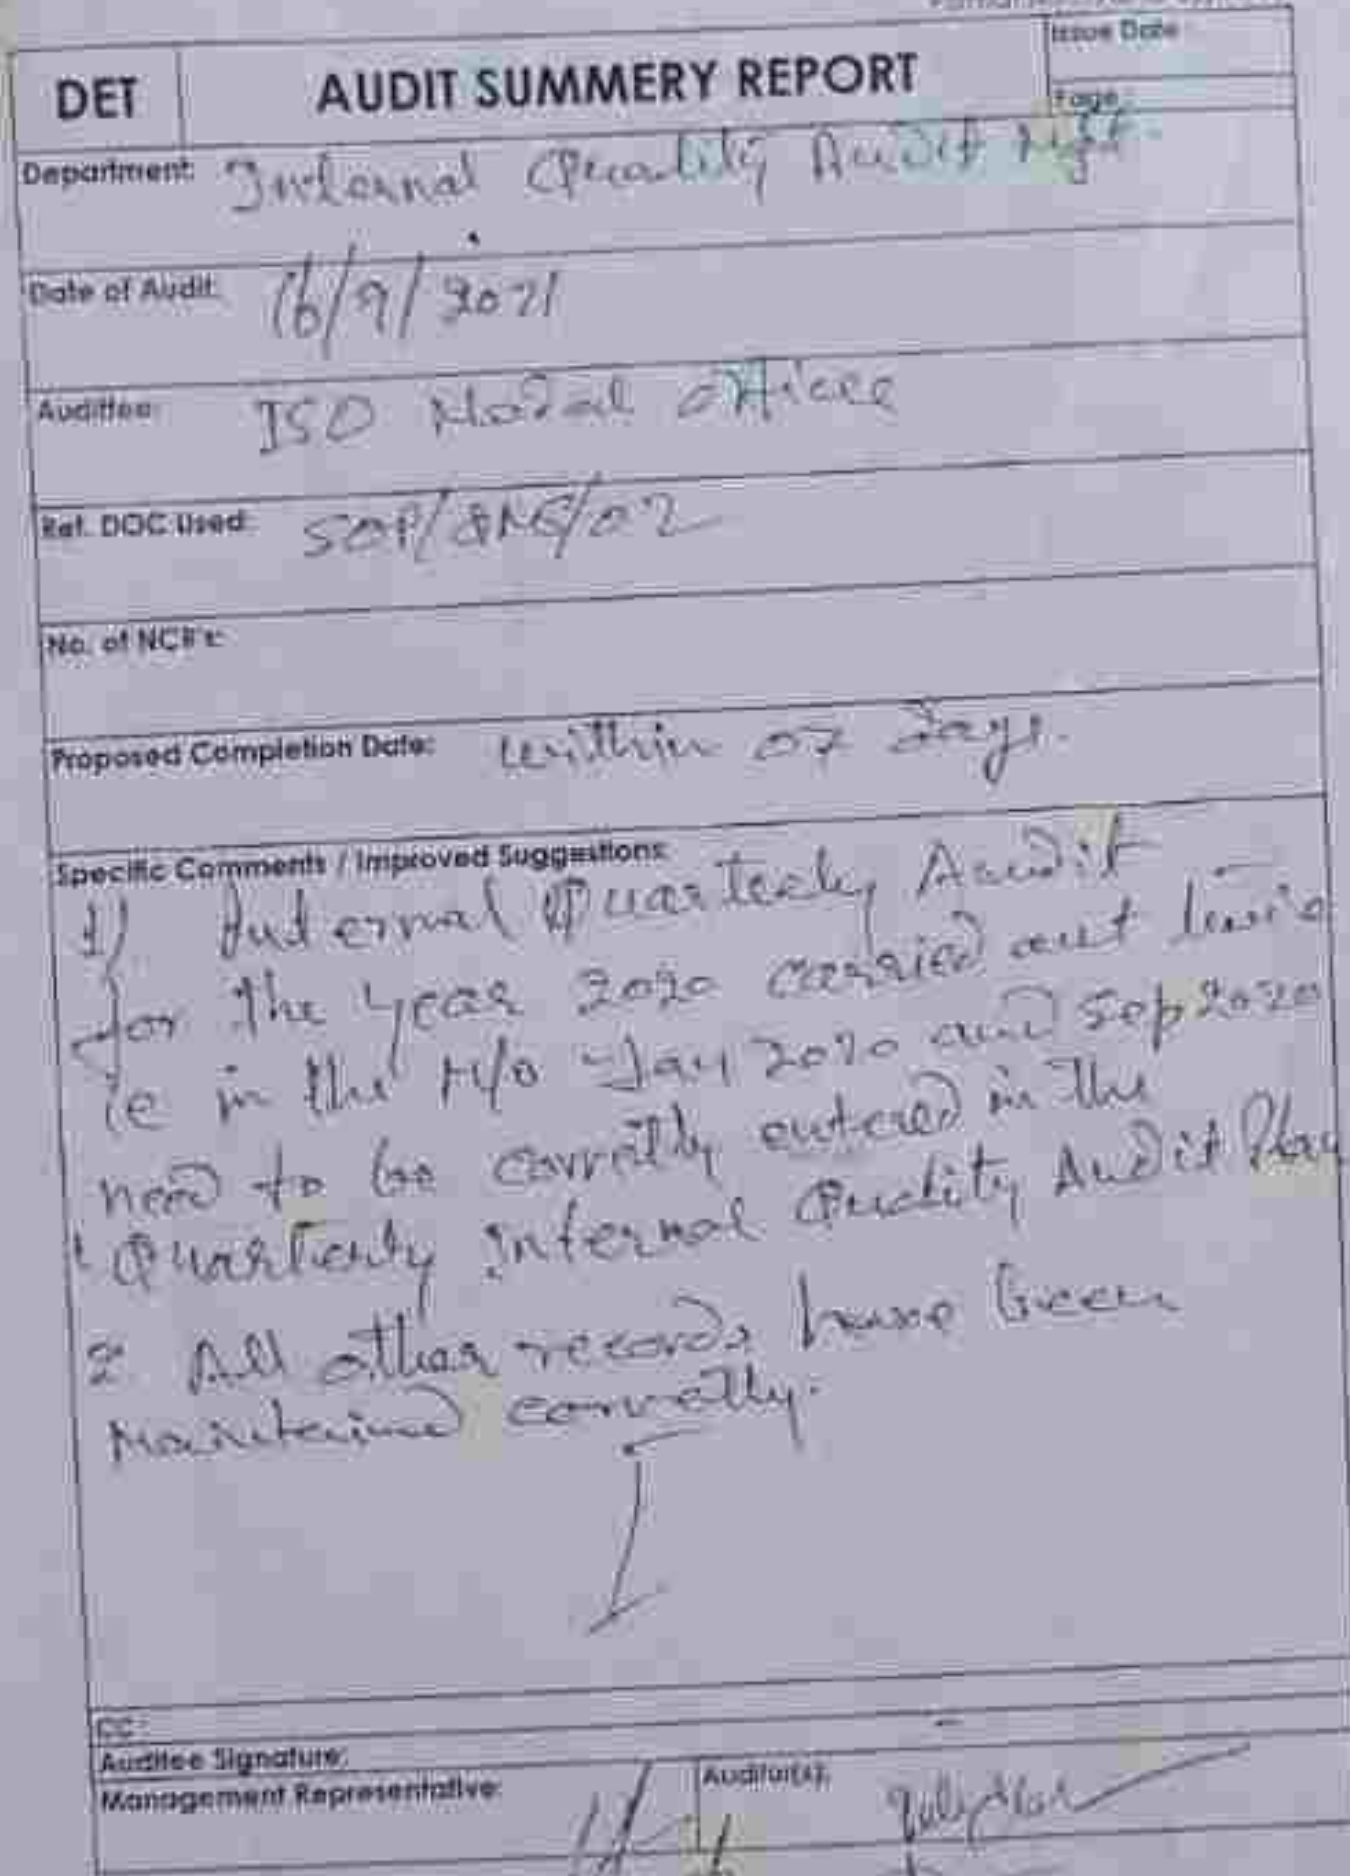 DET
AUDIT SUMMERY REPORT
Issue Date
Page:
Department: Internal Quality Audit
Date of Audit: 16/9/2021
Auditee: ISO Nodal Officer
Ref. DOC Used: SOP/ /02
No. of NCR's:
Proposed Completion Date: within 07 days.
Specific Comments / Improved Suggestions
1) Internal Quarterly Audit
for the year 2020 carried out
ie in the M/o Jan 2020 and Sep 2020
need to be correctly entered in the
Quarterly internal Quality Audit Plan
2. All other records have been
Maintained correctly.
CC:
Auditee Signature:
Management Representative:
Auditor(s):